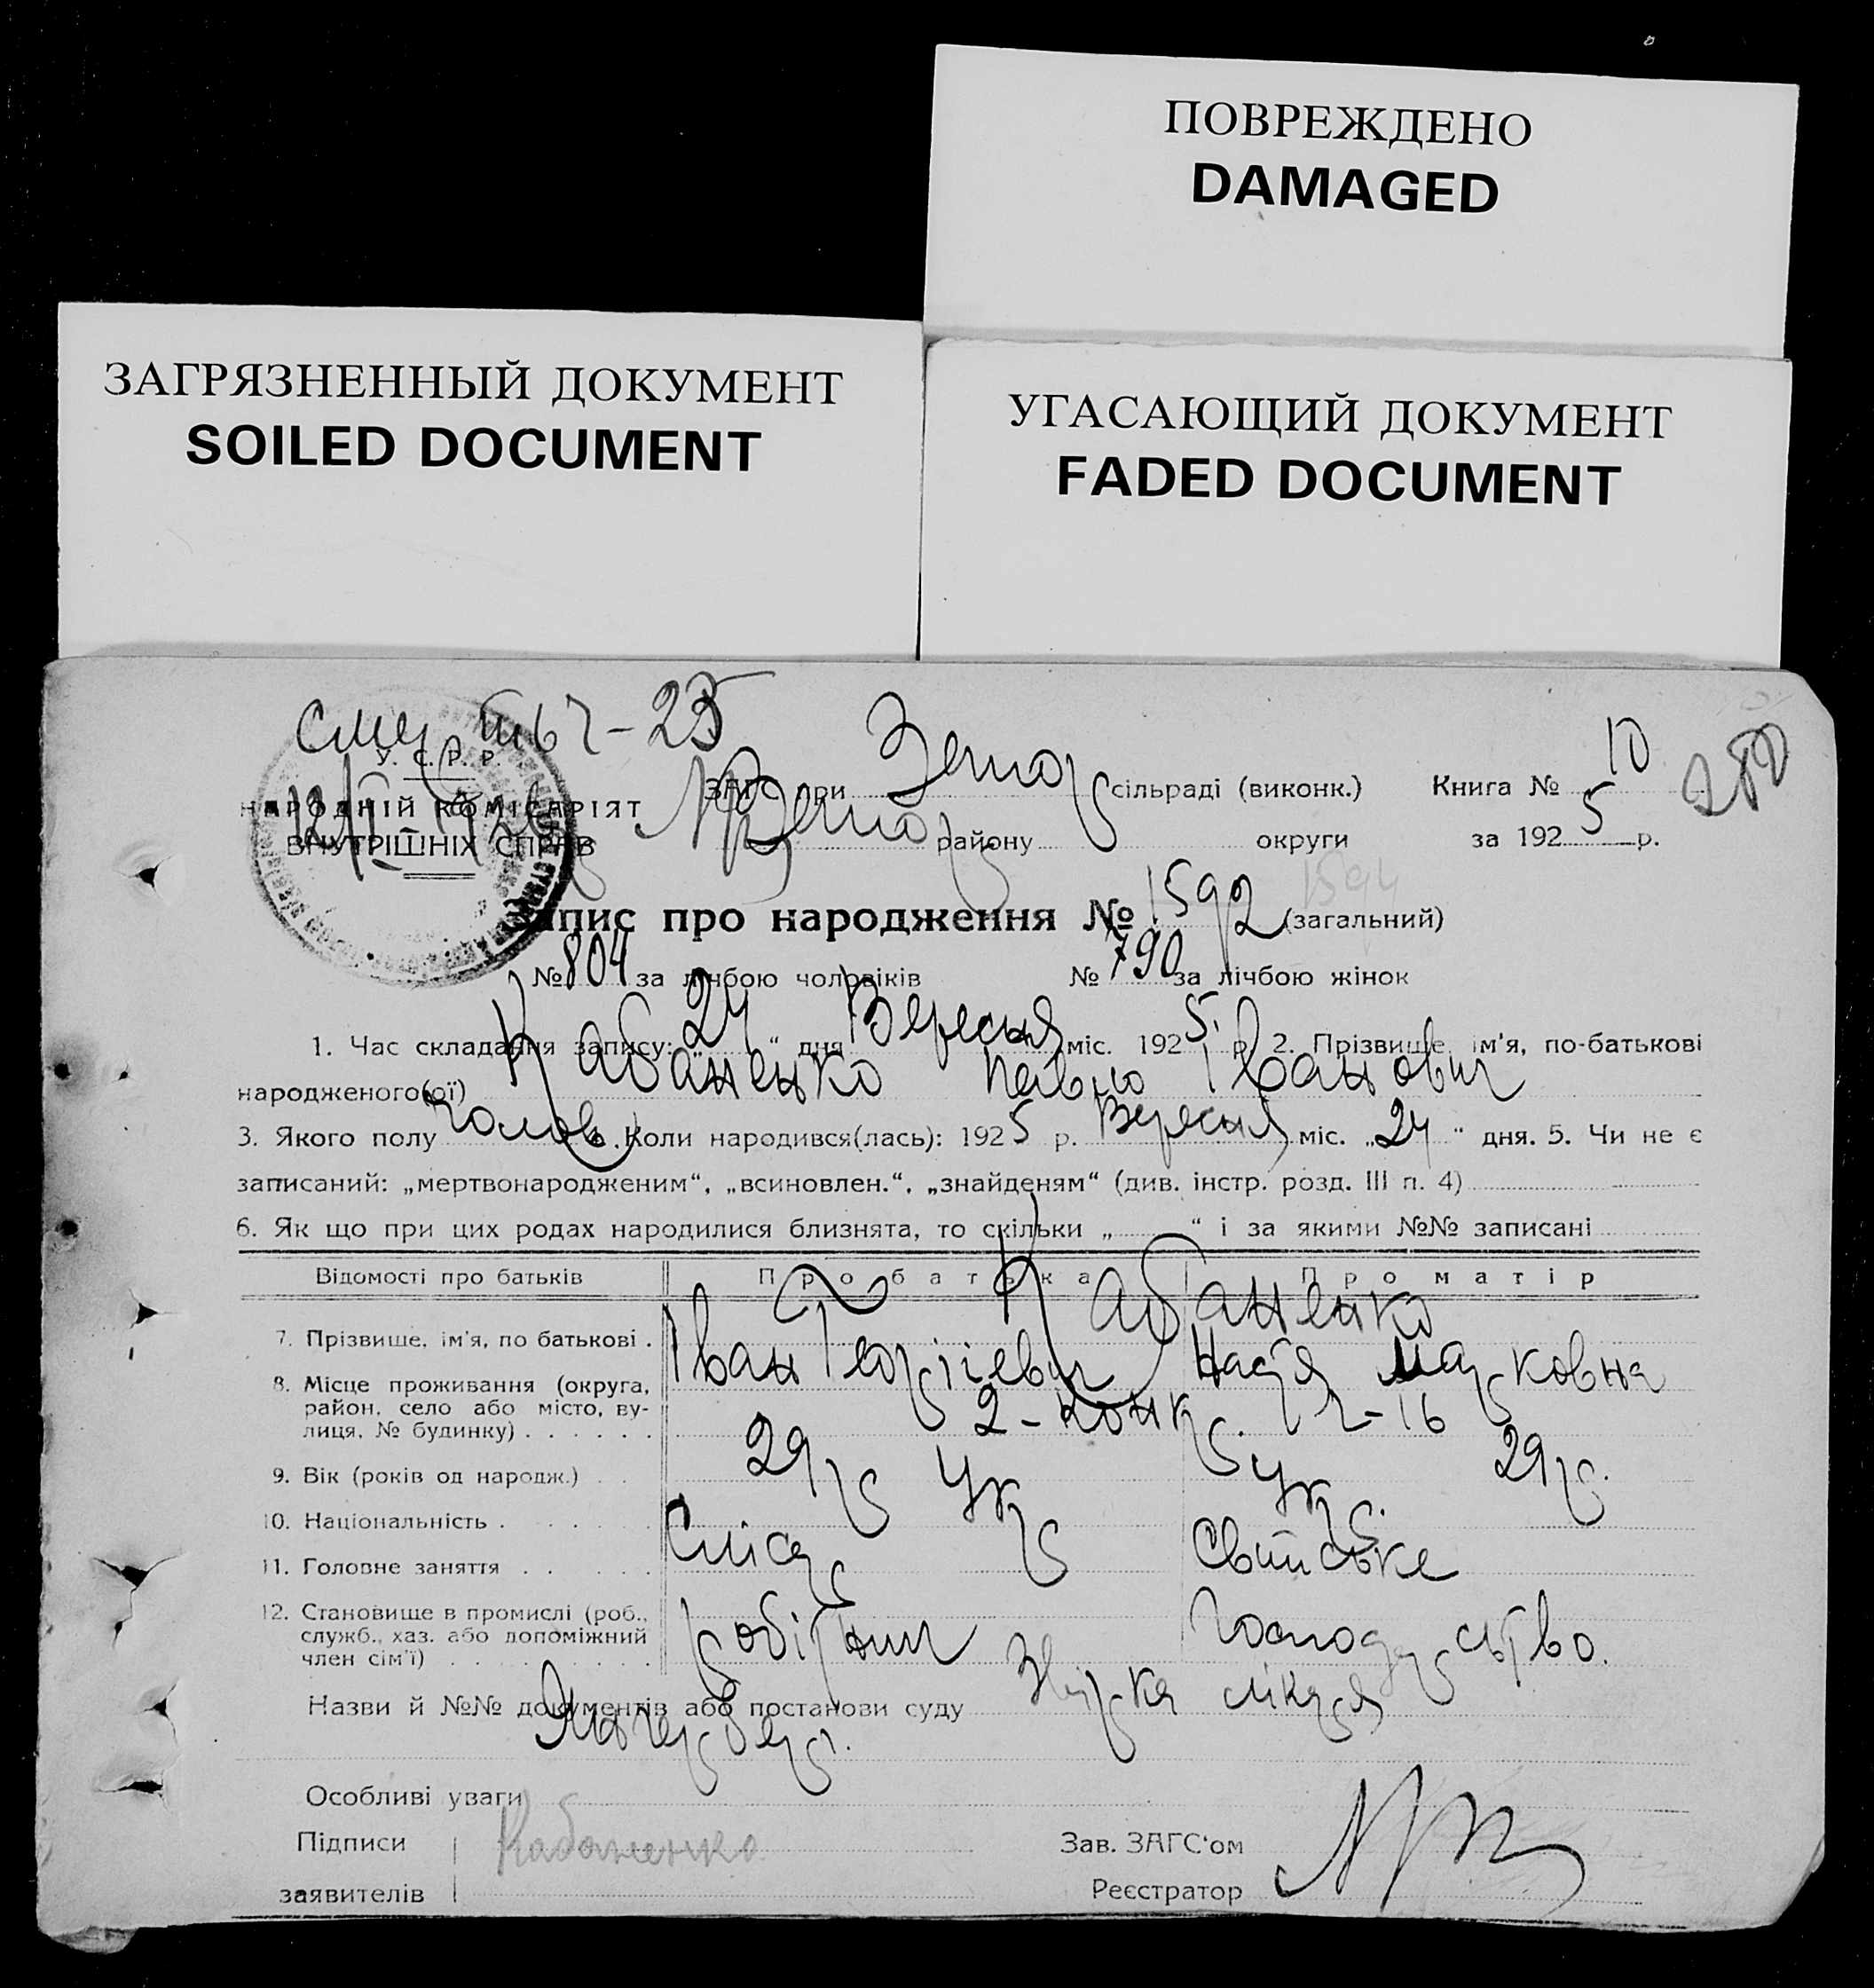 ПОВРЕЖДЕНО
DAMAGED
ЗАГРЯЗНЕННЫЙ ДОКУМЕНТ
SOILED DOCUMENT
УГАСАЮЩИЙ ДОКУМЕНТ
FADED DOCUMENT
У. С. Р. Р.
НАРОДНІЙ КОМІСАРІЯТ
ВНУТРІШНІХ СПРАВ
ЗАГС при сільраді (виконк.) Книга № 10
280
району округи за 1925 р.
Запис про народження № 1592 (загальний)
1594
№ 804 за лічбою чоловіків № 790 за лічбою жінок
1. Час складання запису: „24“ дня Вересня міс. 1925 р. 2. Прізвище, ім'я, по-батькові
народженого(ої) Кабаненко Павло Іванович
3. Якого полу чолов. 4. Коли народився(лась): 1925 р. Вересня міс. „24“ дня. 5. Чи не є
записаний: „мертвонародженим“, „всиновлен.“, „знайденям“ (див. інстр. розд. III п. 4)
6. Як що при цих родах народилися близнята, то скільки „ “ і за якими №№ записані
Відомості про батьків Про батька Про матір
Кабаненко
7. Прізвище, ім'я, по батькові . Іван Георгієвич Надія Марковна
8. Місце проживання (округа,
район, село або місто, ву-
лиця, № будинку) . . . . . . 2-
9. Вік (років од народж.) . . 29 р 29 р.
10. Національність . . . . . . Укр Укр.
11. Головне заняття . . . . . Слісар Свійське
12. Становище в промислі (роб.,
служб., хаз. або допоміжний
член сім'ї) . . . . . . . . . робітник господарство.
Назви й №№ документів або постанови суду лікаря
Особливі уваги
Підписи Кабаненко Зав. ЗАГС'ом
заявителів Реєстратор